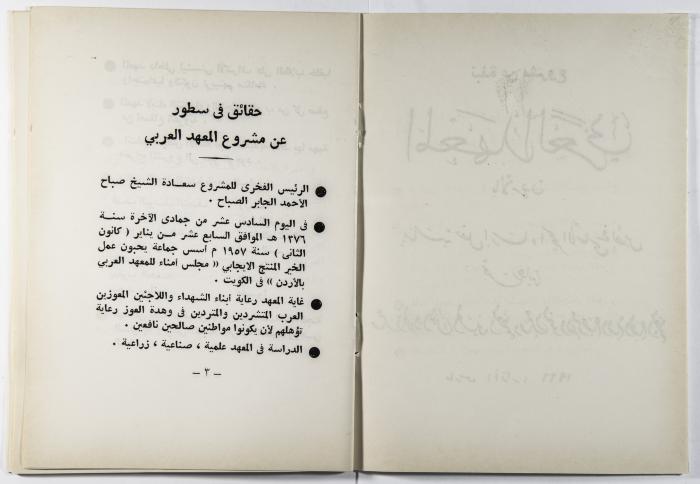 حقائق فى سطور
عن مشروع المعهد العربي
● الرئيس الفخرى للمشروع سعادة الشيخ صباح
الأحمد الجابر الصباح .
● فى اليوم السادس عشر من جمادى الآخرة سنة
١٣٧٦ هـ الموافق السابع عشر من يناير ( كانون
الثانى ) سنة ١٩٥٧ م أسس جماعة يحبون عمل
الخير المنتج الايجابي « مجلس أمناء للمعهد العربي
بالأردن » فى الكويت .
● غاية المعهد رعاية أبناء الشهداء واللاجئين المعوزين
العرب المتشردين والمتردين فى وهدة العوز رعاية
تؤهلهم لأن يكونوا مواطنين صالحين نافعين .
● الدراسة فى المعهد علمية ، صناعية ، زراعية .
– ٣ –